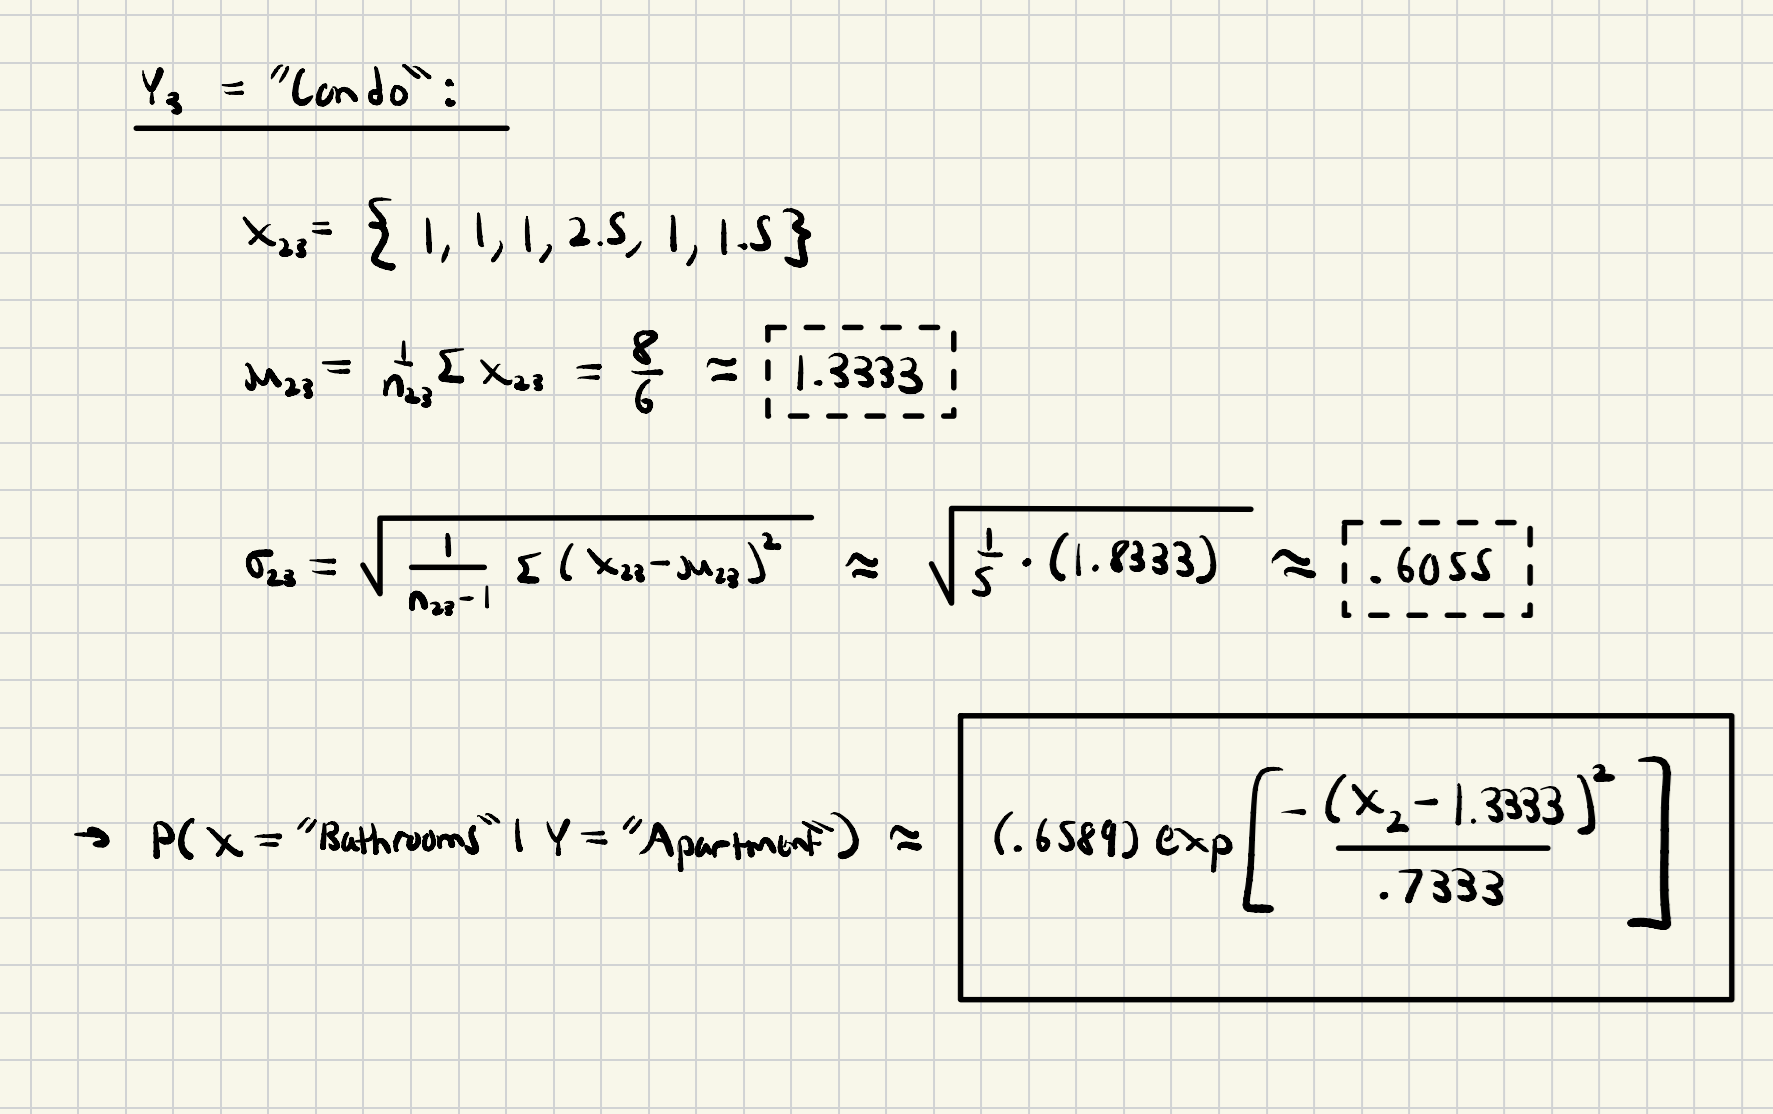 Y₃ = "Condo":
x₂₃ = { 1, 1, 1, 2.5, 1, 1.5 }
μ₂₃ = 1/n₂₃ Σ x₂₃ = 8/6 ≈ 1.3333
σ₂₃ = √(1/(n₂₃-1) Σ (x₂₃-μ₂₃)²) ≈ √(1/5 · (1.8333)) ≈ .6055
→ P( X = "Bathrooms" | Y = "Apartment") ≈ (.6589) exp[ -(x₂ - 1.3333)² / .7333 ]